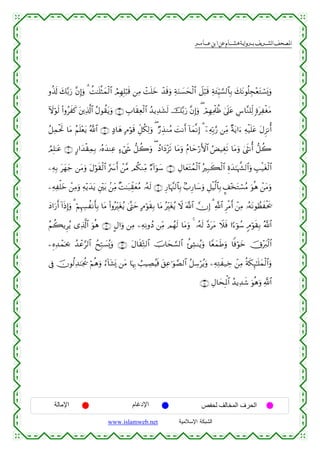 المصحف الشريف برواية هشام عن ابن عامر
وَيَسْتَعْجِلُونَكَ بِالسَّيِّئَةِ قَبْلَ الْحَسَنَةِ وَقَدْ خَلَتْ مِن قَبْلِهِمُ الْمَثُلَاتُ وَإِنَّ رَبَّكَ لَذُو
مَغْفِرَةٍ لِّلنَّاسِ عَلَىٰ ظُلْمِهِمْ وَإِنَّ رَبَّكَ لَشَدِيدُ الْعِقَابِ ۝ وَيَقُولُ الَّذِينَ كَفَرُوا لَوْلَا
أُنزِلَ عَلَيْهِ ءَايَةٌ مِّن رَّبِّهِ إِنَّمَا أَنتَ مُنذِرٌ وَلِكُلِّ قَوْمٍ هَادٍ ۝ اللَّهُ يَعْلَمُ مَا تَحْمِلُ
كُلُّ أُنثَىٰ وَمَا تَغِيضُ الْأَرْحَامُ وَمَا تَزْدَادُ وَكُلُّ شَيْءٍ عِندَهُ بِمِقْدَارٍ ۝ عَالِمُ
الْغَيْبِ وَالشَّهَادَةِ الْكَبِيرُ الْمُتَعَالِ ۝ سَوَاءٌ مِّنكُم مَّنْ أَسَرَّ الْقَوْلَ وَمَن جَهَرَ بِهِ
وَمَنْ هُوَ مُسْتَخْفٍ بِاللَّيْلِ وَسَارِبٌ بِالنَّهَارِ ۝ لَهُ مُعَقِّبَاتٌ مِّنْ بَيْنِ يَدَيْهِ وَمِنْ خَلْفِهِ
يَحْفَظُونَهُ مِنْ أَمْرِ اللَّهِ إِنَّ اللَّهَ لَا يُغَيِّرُ مَا بِقَوْمٍ حَتَّىٰ يُغَيِّرُوا مَا بِأَنفُسِهِمْ وَإِذَا أَرَادَ
اللَّهُ بِقَوْمٍ سُوءًا فَلَا مَرَدَّ لَهُ وَمَا لَهُم مِّن دُونِهِ مِن وَالٍ ۝ هُوَ الَّذِي يُرِيكُمُ
الْبَرْقَ خَوْفًا وَطَمَعًا وَيُنشِئُ السَّحَابَ الثِّقَالَ ۝ وَيُسَبِّحُ الرَّعْدُ بِحَمْدِهِ
وَالْمَلَائِكَةُ مِنْ خِيفَتِهِ وَيُرْسِلُ الصَّوَاعِقَ فَيُصِيبُ بِهَا مَن يَشَاءُ وَهُمْ يُجَادِلُونَ فِي
اللَّهِ وَهُوَ شَدِيدُ الْمِحَالِ ۝
الحرف المخالف لحفص الإدغام الإمالة
الشبكة الإسلامية www.islamweb.net